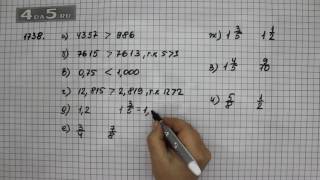 4DA5.RU
1738. а) 4357 > 986
б) 7615 > 7613, т.к 5>3
в) 0,75 < 1,000
г) 12,815 > 2,819, т.к 12>2
д) 1,2 1 3/5 = 1,
е) 3/4 7/8
ж) 1 3/5 1 1/2
з) 1 4/5 9/70
и) 5/8 1/2